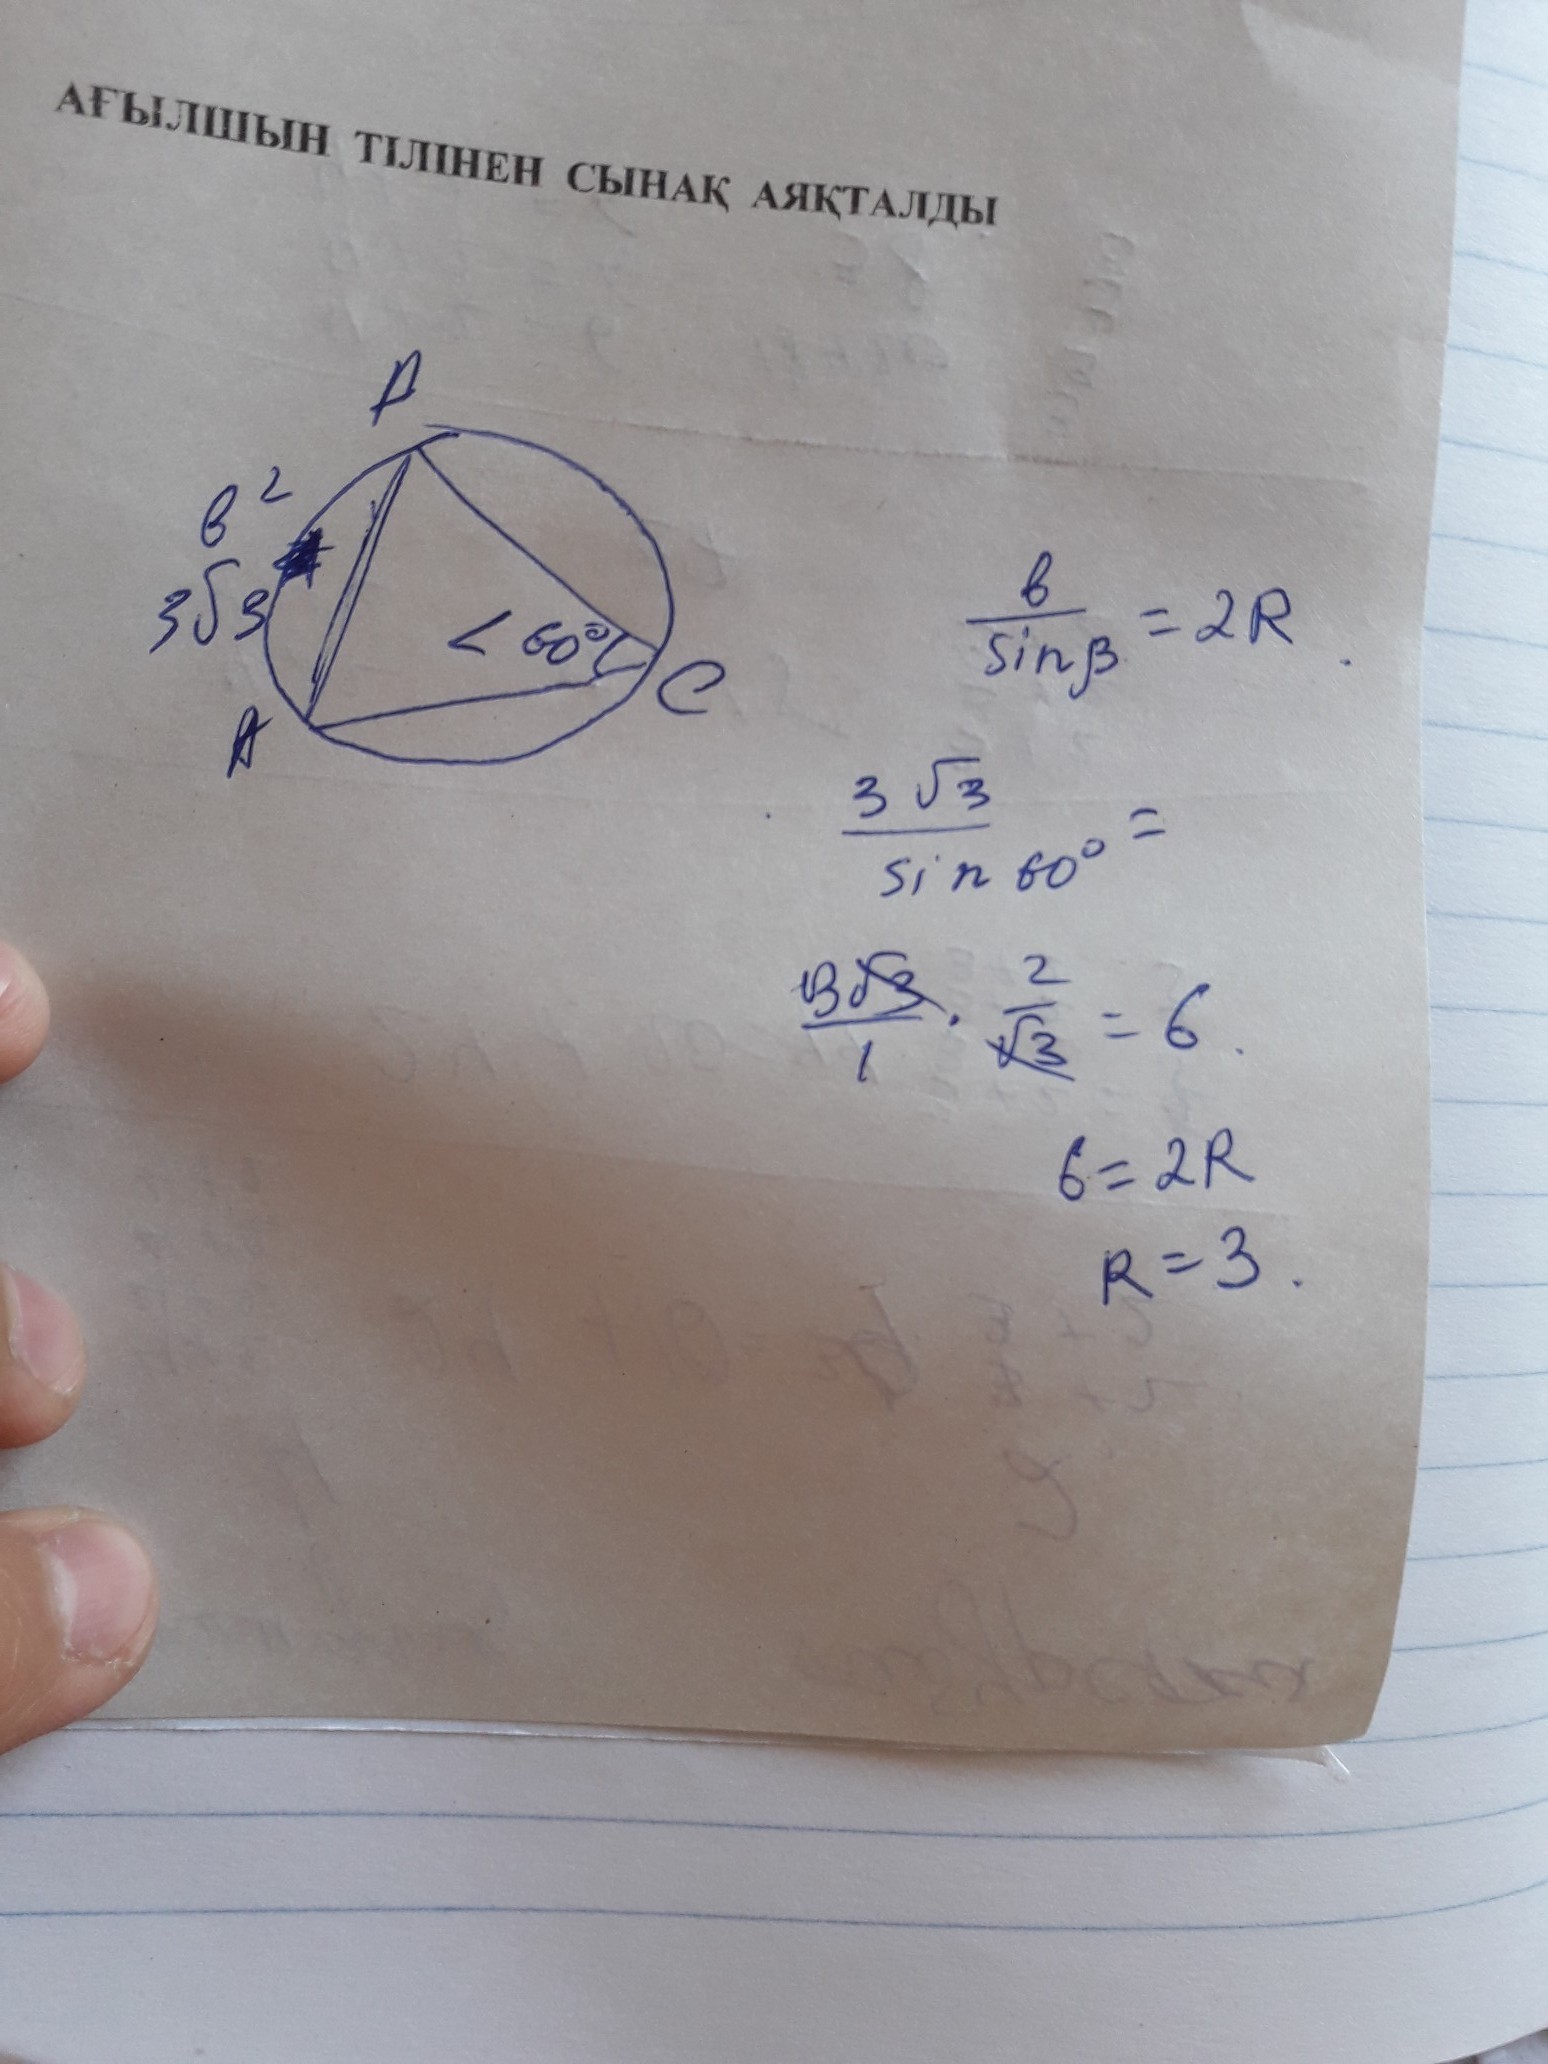 АҒЫЛШЫН ТІЛІНЕН СЫНАҚ АЯҚТАЛДЫ
A
в²
3√3
< 60°
C
A
в/sinβ = 2R.
3√3/sin 60° =
3√3/1 · 2/√3 = 6.
6 = 2R
R = 3.